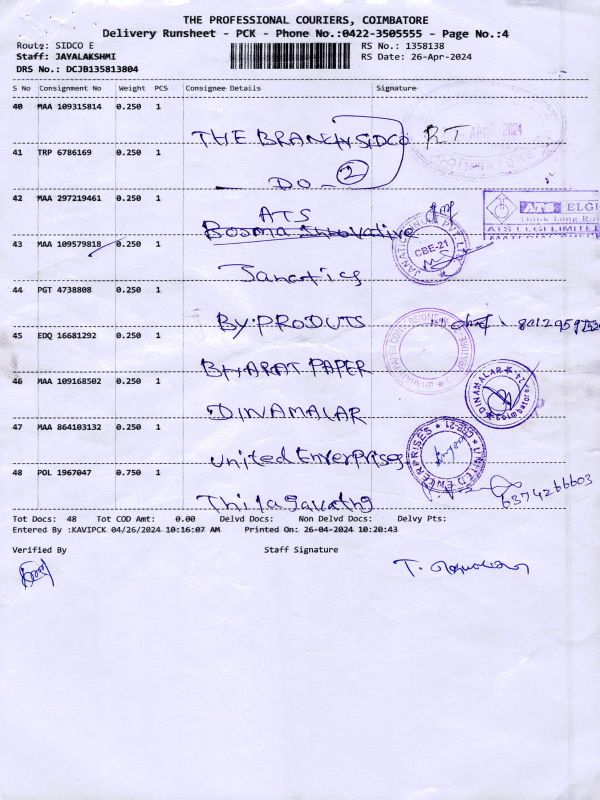 THE PROFESSIONAL COURIERS, COIMBATORE
Delivery Runsheet - PCK - Phone No.:0422-3505555 - Page No.:4
Route: SIDCO E RS No.: 1358138
Staff: JAYALAKSHMI RS Date: 26-Apr-2024
DRS No.: DCJB135813804
S No Consignment No Weight PCS Consignee Details Signature
40 MAA 109315814 0.250 1
THE BRANCH SIDCO RT
2024
COIMBATORE
41 TRP 6786169 0.250 1
DO - 2
42 MAA 297219461 0.250 1
ATS
ATS ELGI
Think Long Run
ATS ELGI LIMITED
Bosma Innovative
CBE-21
43 MAA 109579818 0.250 1
Janatics
44 PGT 4738808 0.250 1
BY.PRODUTS
45 EDQ 16681292 0.250 1
BHARAT PAPER
46 MAA 109168502 0.250 1
DINAMALAR
DINAMALAR
Coimbatore
47 MAA 864103132 0.250 1
United Enterprises
UNITED ENTERPRISES CBE-21
48 POL 1967047 0.750 1
Thilagavathy
6374266603
Tot Docs: 48 Tot COD Amt: 0.00 Delvd Docs: Non Delvd Docs: Delvy Pts:
Entered By :KAVIPCK 04/26/2024 10:16:07 AM Printed On: 26-04-2024 10:20:43
Verified By Staff Signature